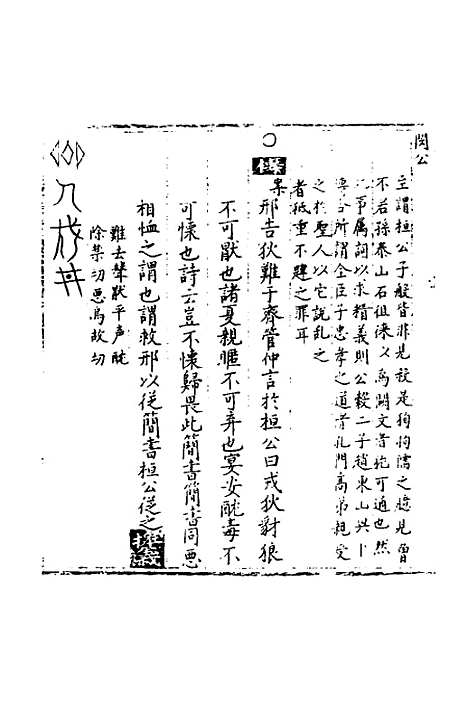 閔公
主謂桓公子般皆非見殺是狥拘儒之臆見曾
不若孫泰山石徂徠以為闕文者抱可通也然
事屬詞以求精義則公穀二子趙東山共
合所謂全臣子忠孝之道者孔門高弟親受
之於聖人以它說亂之
者秪重不韙之罪耳
邢告狄難于齊管仲言於桓公曰戎狄豺狼
不可厭也諸夏親暱不可弃也宴安酖毒不
可懷也詩云豈不懷歸畏此簡書簡書同惡
相恤之謂也謂救邢以從簡書桓公從之
難去聲厭平声酖
除蔭切惡烏故切